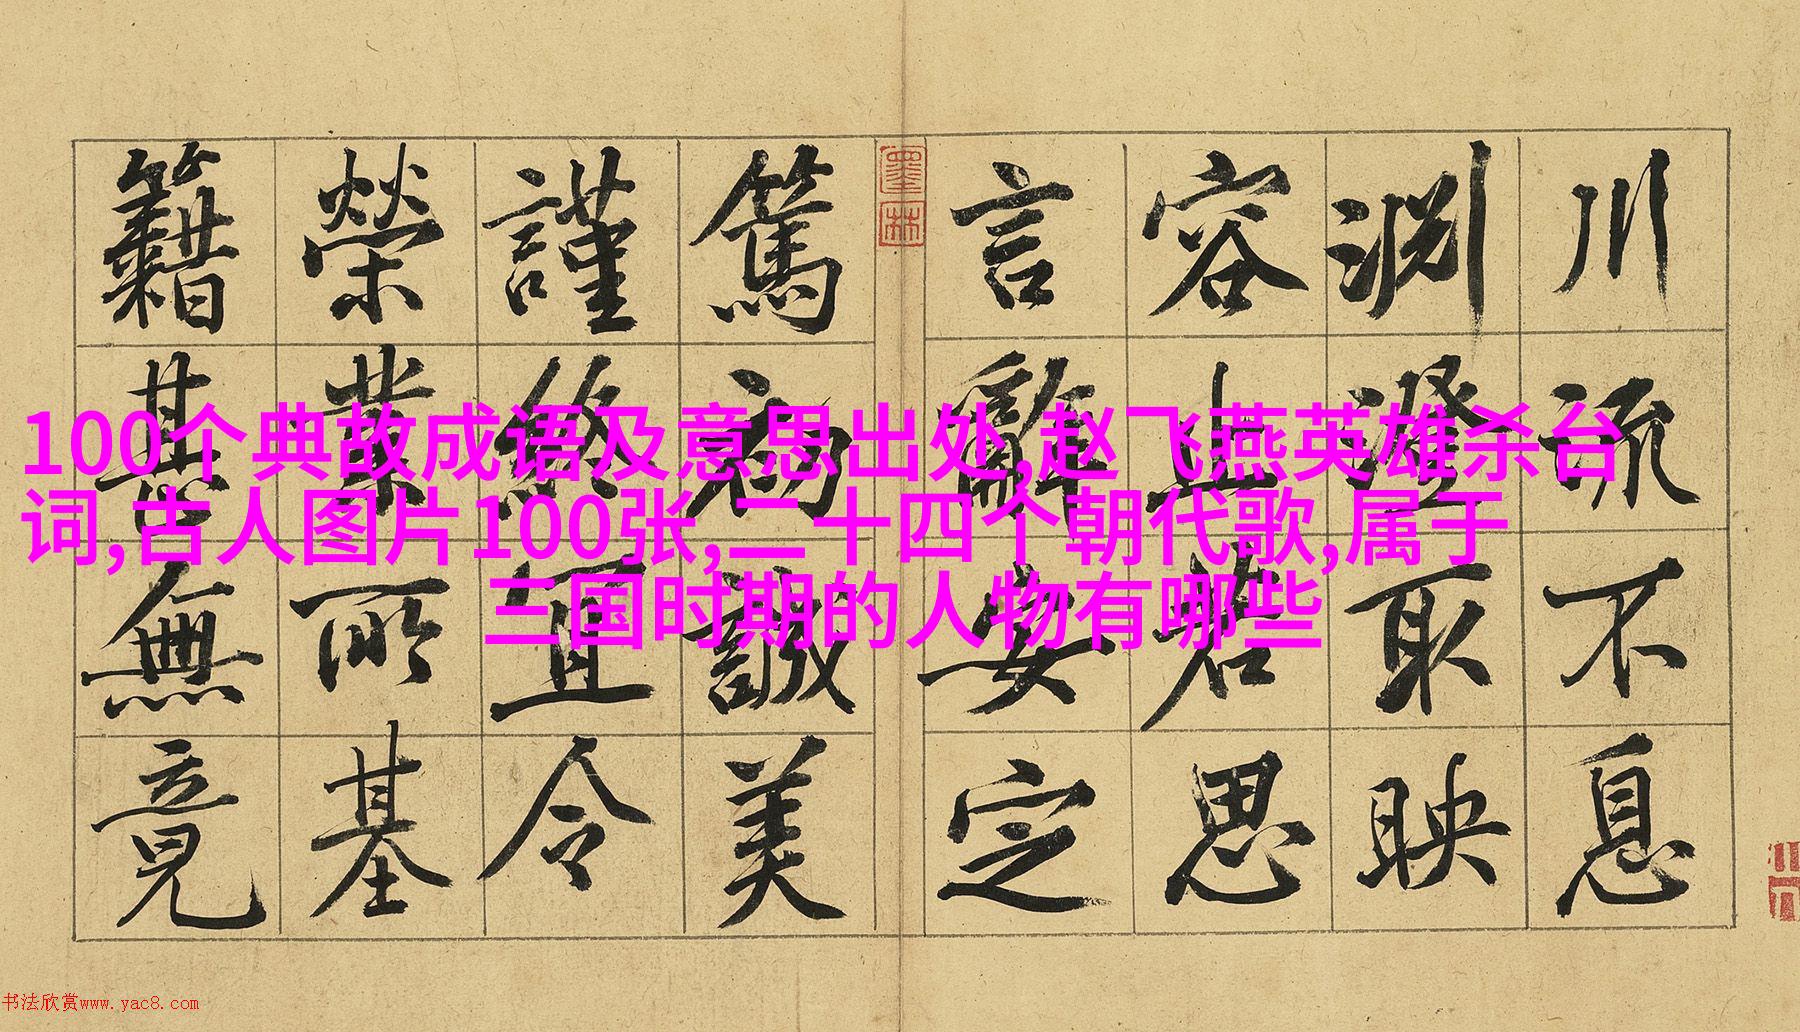 川流不息
淵澄取映
容止若思
言辭安定
篤初誠美
謹終宜令
榮業所基
籍甚無竟
墨林
100个典故成语及意思出处,赵飞燕英雄杀台
词,古人图片100张,二十四个朝代歌,属于
三国时期的人物有哪些
书法欣赏www.yac8.com